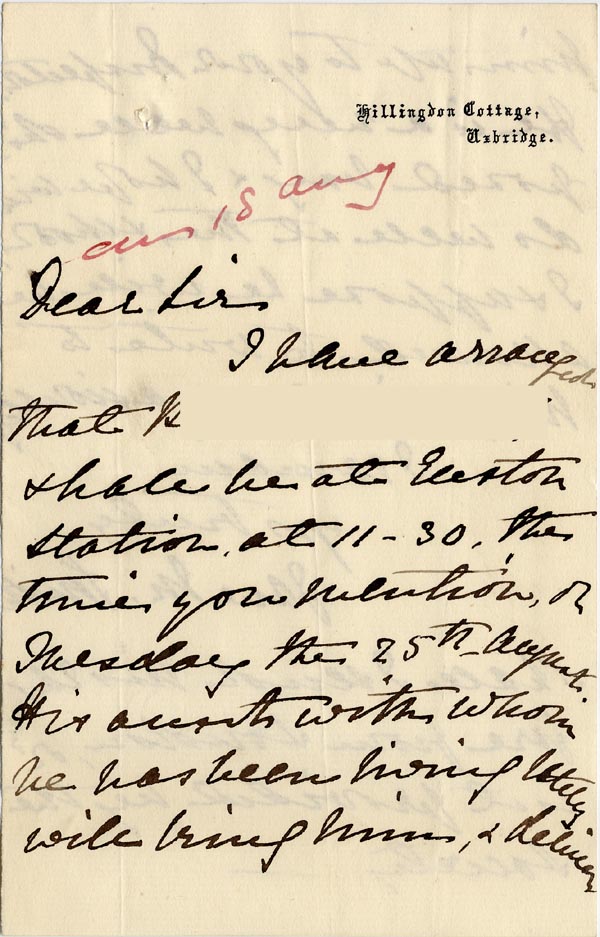 Hillingdon Cottage,
Uxbridge.
ans 18 aug
Dear Sir
I have arranged
that
shall be at Euston
station, at 11-30, the
time you mention, on
Tuesday the 25th August.
His aunt with whom
he has been living lately
will bring him, & deliver